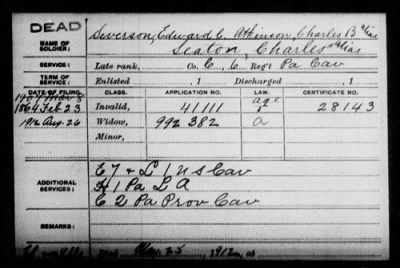 DEAD
Severson, Edward C. Atkinson, Charles B alias
NAME OF SOLDIER:
Seaton, Charles alias
SERVICE: Late rank, Co. C, 6 Reg't Pa Cav
TERM OF SERVICE: Enlisted , 1 Discharged , 1
DATE OF FILING. CLASS. APPLICATION NO. LAW. CERTIFICATE NO.
1907 Mar 8 age
1864 Feb 23 Invalid, 41111 28143
1912 Aug. 26 Widow, 992382 a
Minor,
E 7 & L 1 U S Cav
ADDITIONAL SERVICES: H 1 Pa L A
E 2 Pa Prov Cav
REMARKS:
May 25, 1912, at